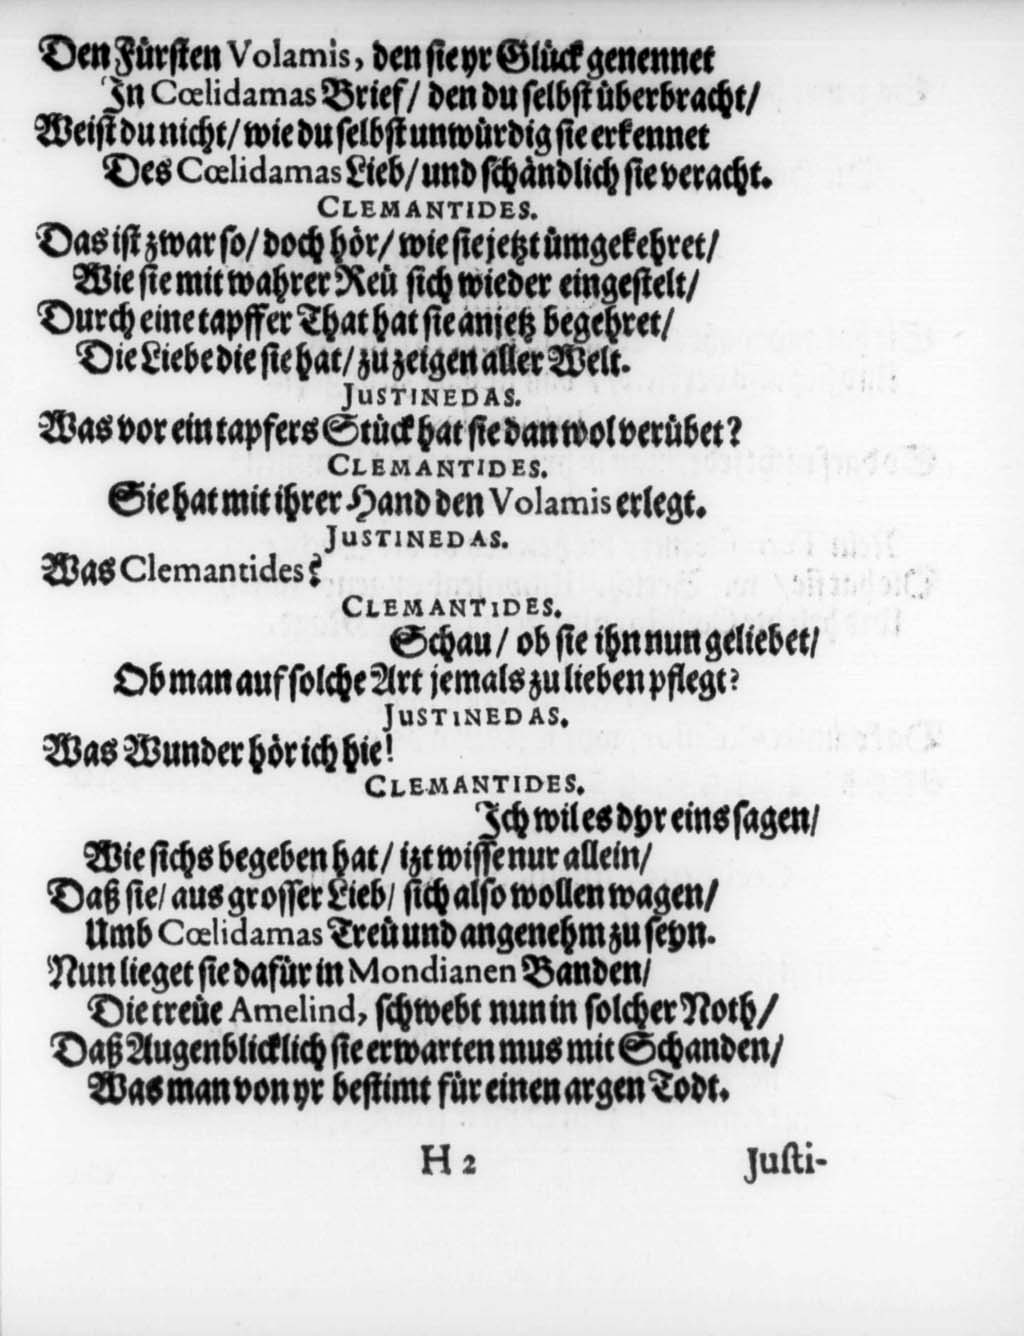 Den Fürsten Volamis, den sie yr Glück genennet
In Cœlidamas Brief/ den du selbst überbracht/
Weist du nicht/ wie du selbst unwürdig sie erkennet
Des Cœlidamas Lieb/ und schändlich sie veracht.
CLEMANTIDES.
Das ist zwar so/ doch hör/ wie sie jetzt ümgekehret/
Wie sie mit wahrer Reü sich wieder eingestelt/
Durch eine tapffer That hat sie anjetz begehret/
Die Liebe die sie hat/ zu zeigen aller Welt.
JUSTINEDAS.
Was vor ein tapfers Stück hat sie dan wol verübet?
CLEMANTIDES.
Sie hat mit ihrer Hand den Volamis erlegt.
JUSTINEDAS.
Was Clemantides?
CLEMANTIDES.
Schau/ ob sie ihn nun geliebet/
Ob man auf solche Art jemals zu lieben pflegt?
JUSTINEDAS.
Was Wunder hör ich hie!
CLEMANTIDES.
Ich wil es dyr eins sagen/
Wie sichs begeben hat/ izt wisse nur allein/
Daß sie/ aus grosser Lieb/ sich also wollen wagen/
Umb Cœlidamas Treü und angenehm zu seyn.
Nun lieget sie dafür in Mondianen Banden/
Die treüe Amelind, schwebt nun in solcher Noth/
Daß Augenblicklich sie erwarten mus mit Schanden/
Was man von yr bestimt für einen argen Todt.
H 2 Justi-